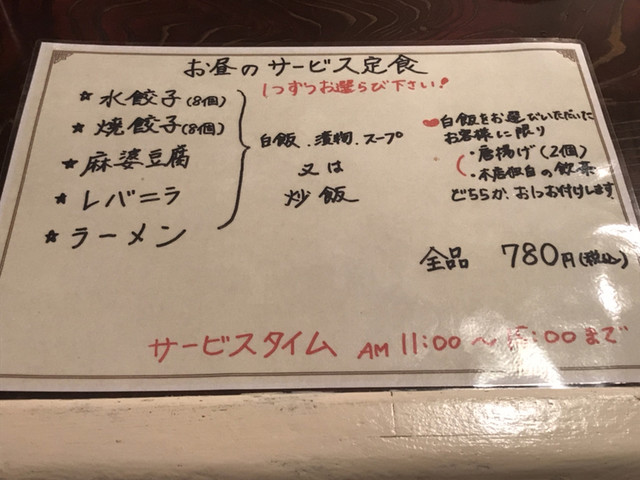 お昼のサービス定食
1つずつお選らび下さい!
★ 水餃子(8個)
★ 焼餃子(8個)
★ 麻婆豆腐
★ レバニラ
★ ラーメン
白飯、漬物、スープ
又は
炒飯
♥白飯をお選びいただいた
お客様に限り
・唐揚げ(2個)
・本店独自の飲茶
どちらか、お1つお付けします。
全品 780円(税込)
サービスタイム AM 11:00〜 :00まで